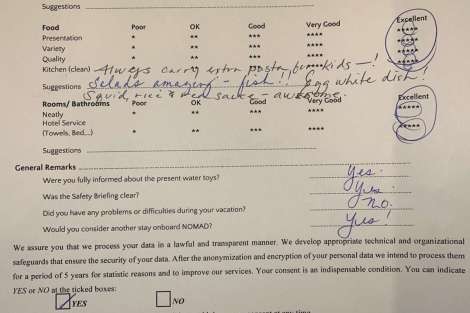 Suggestions
Food Poor OK Good Very Good Excellent
Presentation * ** *** **** *****
Variety * ** *** **** *****
Quality * ** *** **** *****
Kitchen (clean) Always carry extra pasta for kids - !
Suggestions Salads amazing - fish!! Egg white dish!
Squid, rice & red sauce - awesome.
Rooms/ Bathrooms Poor OK Good Very Good Excellent
Neatly * ** *** **** *****
Hotel Service
(Towels, Bed,..) * ** *** **** *****
Suggestions
General Remarks
Were you fully informed about the present water toys? Yes.
Was the Safety Briefing clear? Yes.
Did you have any problems or difficulties during your vacation? No.
Would you consider another stay onboard NOMAD? Yes!
We assure you that we process your data in a lawful and transparent manner. We develop appropriate technical and organizational
safeguards that ensure the security of your data. After the anonymization and encryption of your personal data we intend to process them
for a period of 5 years for statistic reasons and to improve our services. Your consent is an indispensable condition. You can indicate
YES or NO at the ticked boxes:
YES NO